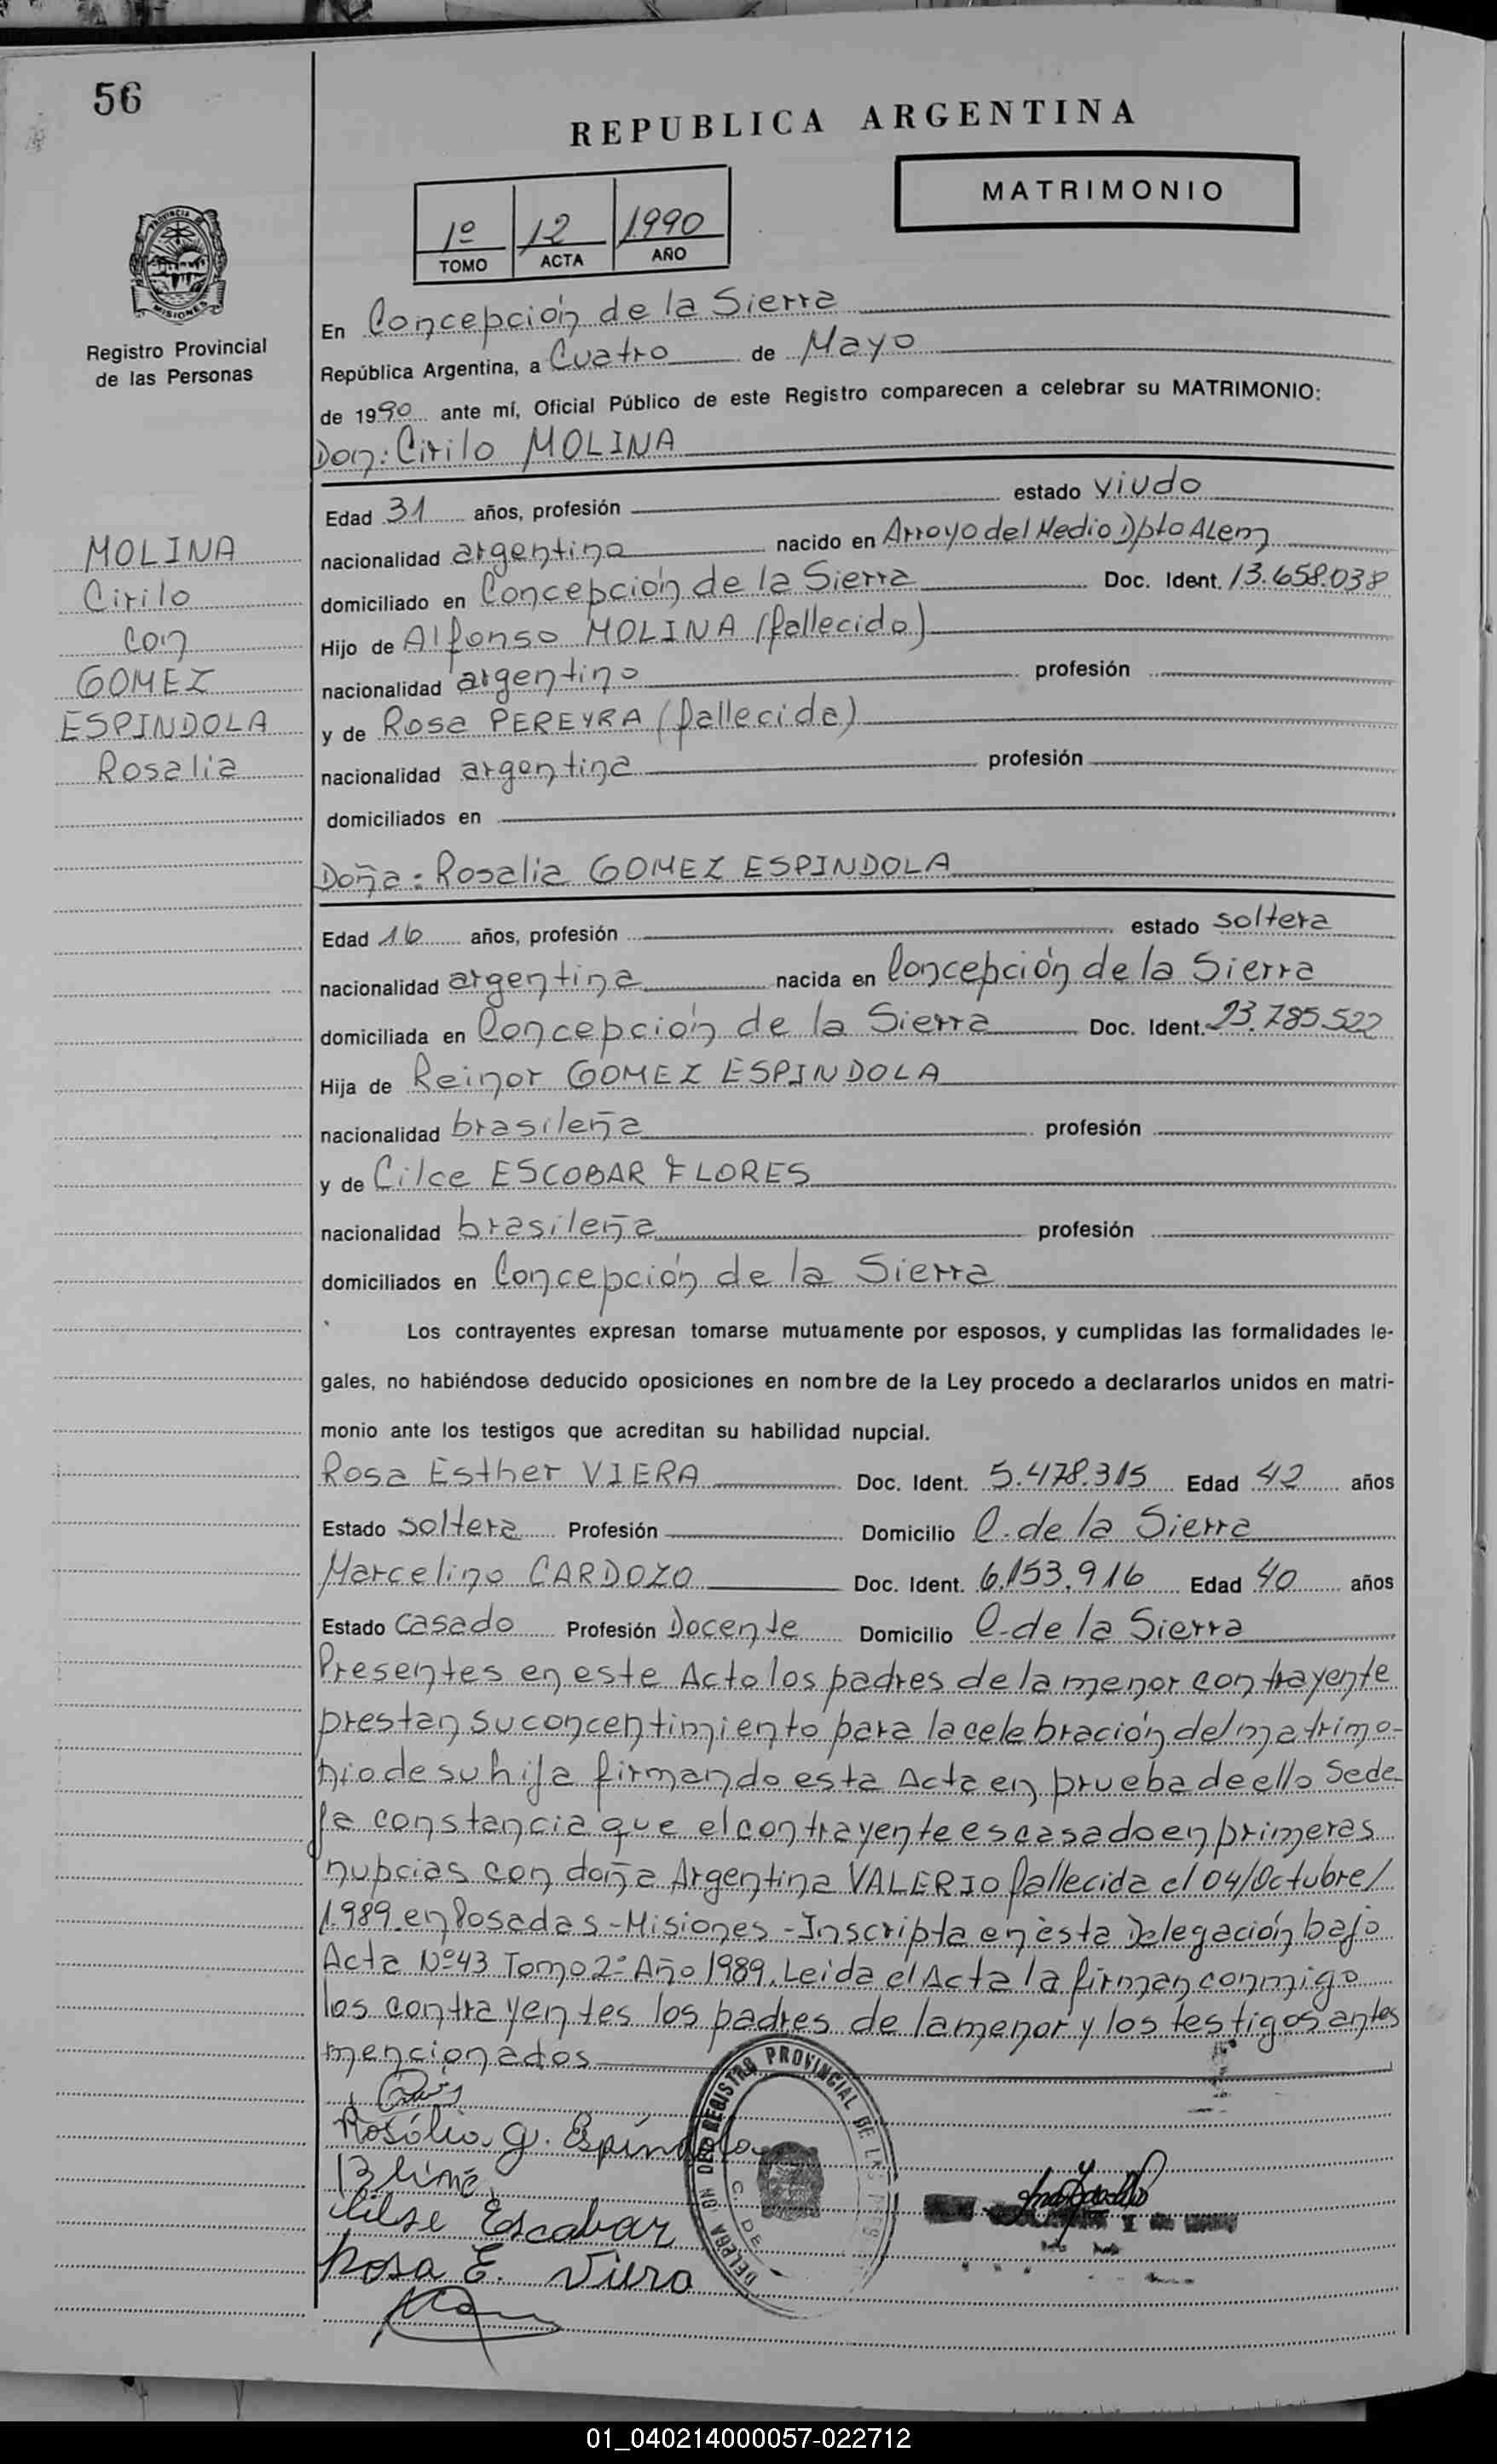 56
REPUBLICA ARGENTINA
MATRIMONIO
1º 12 1990
TOMO ACTA AÑO
PROVINCIA DE
MISIONES
Registro Provincial
de las Personas
En Concepción de la Sierra
República Argentina, a Cuatro de Mayo
de 1990 ante mí, Oficial Público de este Registro comparecen a celebrar su MATRIMONIO:
Don: Cirilo MOLINA
Edad 31 años, profesión estado viudo
MOLINA
Cirilo
con
GOMEZ
ESPINDOLA
Rosalia
nacionalidad argentino nacido en Arroyo del Medio Dpto ALem
domiciliado en Concepción de la Sierra Doc. Ident. 13.658.038
Hijo de Alfonso MOLINA (fallecido)
nacionalidad argentino profesión
y de Rosa PEREYRA (fallecida)
nacionalidad argentina profesión
domiciliados en
Doña: Rosalia GOMEZ ESPINDOLA
Edad 16 años, profesión estado soltera
nacionalidad argentina nacida en Concepción de la Sierra
domiciliada en Concepción de la Sierra Doc. Ident. 23.785.522
Hija de Reinor GOMEZ ESPINDOLA
nacionalidad brasileña profesión
y de Cilce ESCOBAR FLORES
nacionalidad brasileña profesión
domiciliados en Concepción de la Sierra
Los contrayentes expresan tomarse mutuamente por esposos, y cumplidas las formalidades le-
gales, no habiéndose deducido oposiciones en nombre de la Ley procedo a declararlos unidos en matri-
monio ante los testigos que acreditan su habilidad nupcial.
Rosa Esther VIERA Doc. Ident. 5.478.315 Edad 42 años
Estado soltera Profesión Domicilio C. de la Sierra
Marcelino CARDOZO Doc. Ident. 6.153.916 Edad 40 años
Estado casado Profesión Docente Domicilio C. de la Sierra
Presentes en este Acto los padres de la menor contrayente
prestan su concentimiento para la celebración del matrimo-
nio de su hija firmando esta Acta en prueba de ello Se de-
ja constancia que el contrayente es casado en primeras
nupcias con doña Argentina VALERIO fallecida el 04/Octubre/
1989 en Posadas-Misiones-Inscripta en èsta Delegación bajo
Acta Nº43 Tomo 2º Año 1989. Leida el Acta la firman conmigo
los contrayentes los padres de la menor y los testigos antes
mencionados
Rosália g. Espíndola
Cilse Escobar
Rosa E. Viera
REGISTRO PROVINCIAL DE LAS
01_040214000057-022712